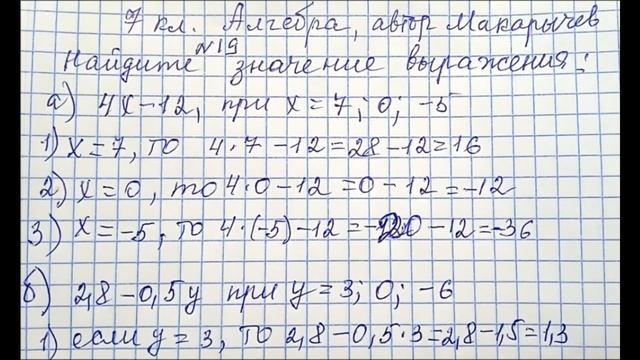 7 кл. Алгебра, автор Макарычев
№19
Найдите значение выражения:
а) 4x-12, при x=7; 0; -5
1) x=7, то 4·7-12=28-12=16
2) x=0, то 4·0-12=0-12=-12
3) x=-5, то 4·(-5)-12=-20-12=-36
б) 2,8-0,5y при y=3; 0; -6
1) если y=3, то 2,8-0,5·3=2,8-1,5=1,3